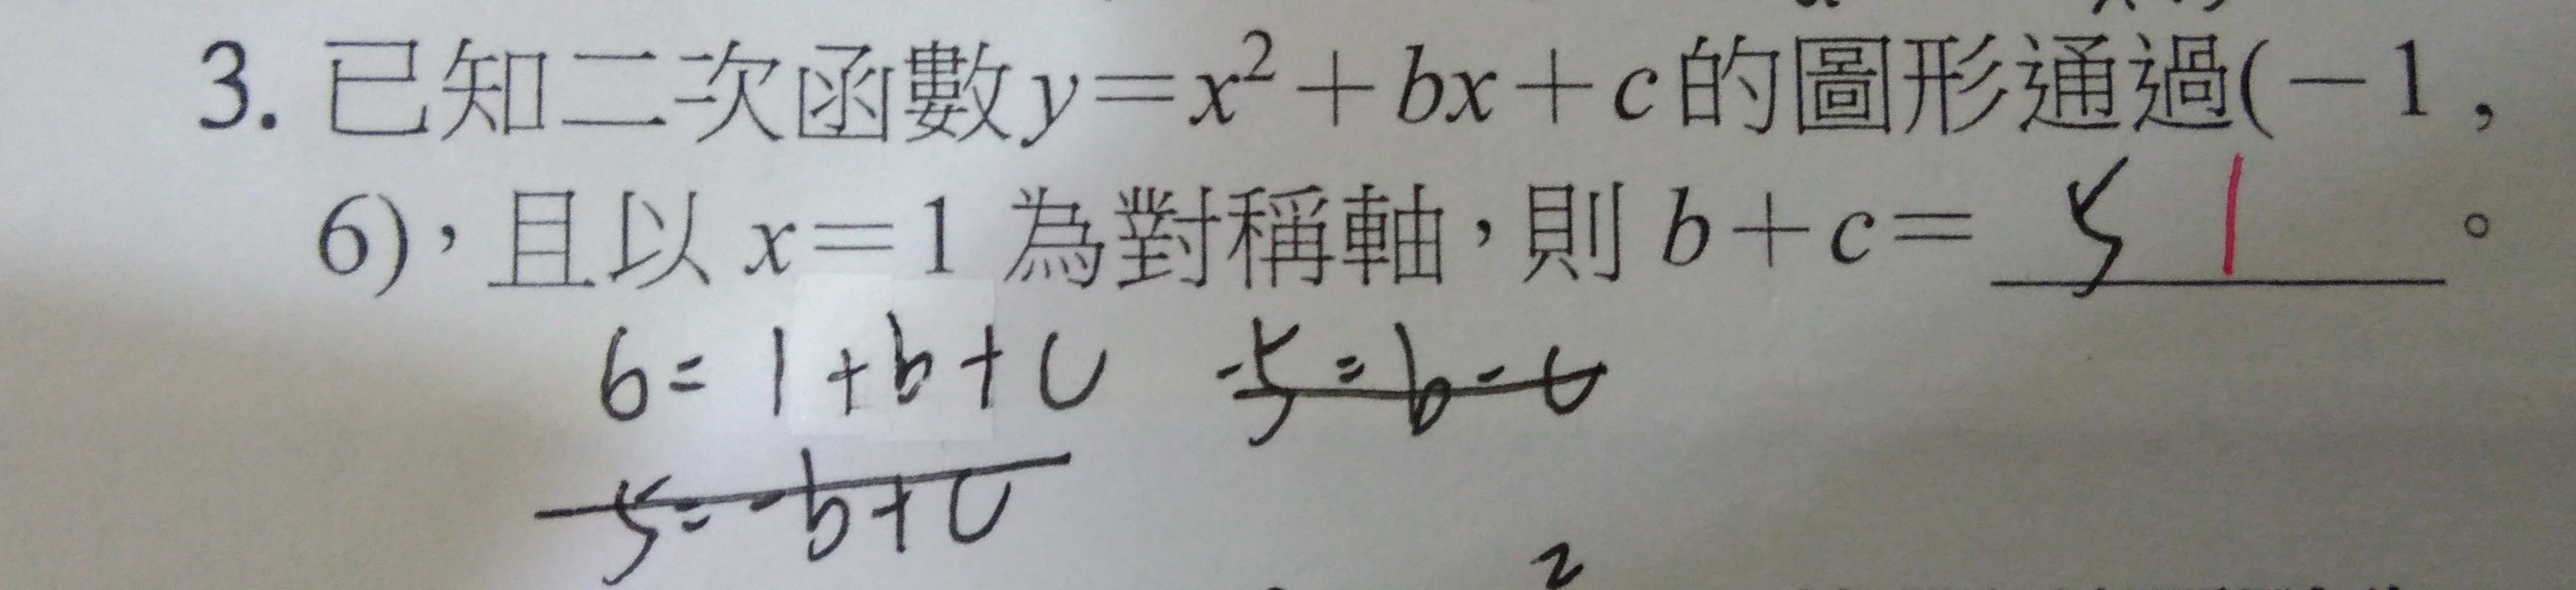 3. 已知二次函數y=x²+bx+c的圖形通過(-1,
6),且以x=1為對稱軸,則b+c= 5 1 。
6=1+b+c -5=b-c
5=-b+c
2